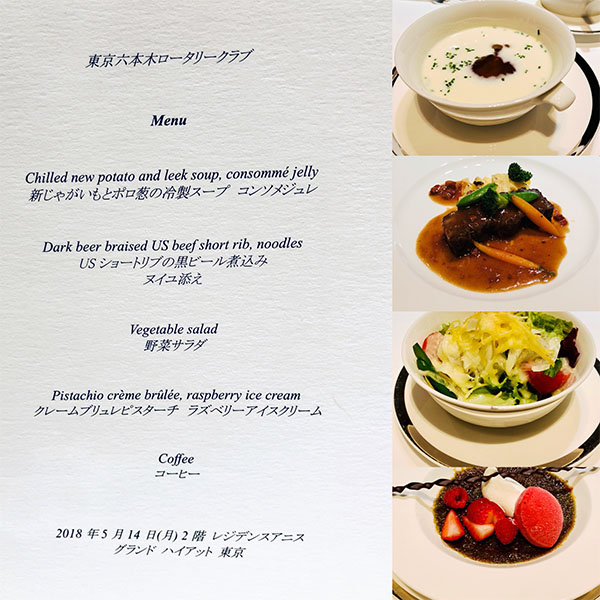 東京六本木ロータリークラブ
Menu
Chilled new potato and leek soup, consommé jelly
新じゃがいもとポロ葱の冷製スープ コンソメジュレ
Dark beer braised US beef short rib, noodles
US ショートリブの黒ビール煮込み
ヌイユ添え
Vegetable salad
野菜サラダ
Pistachio crème brûlée, raspberry ice cream
クレームブリュレピスターチ ラズベリーアイスクリーム
Coffee
コーヒー
2018 年 5 月 14 日(月) 2 階 レジデンスアニス
グランド ハイアット 東京